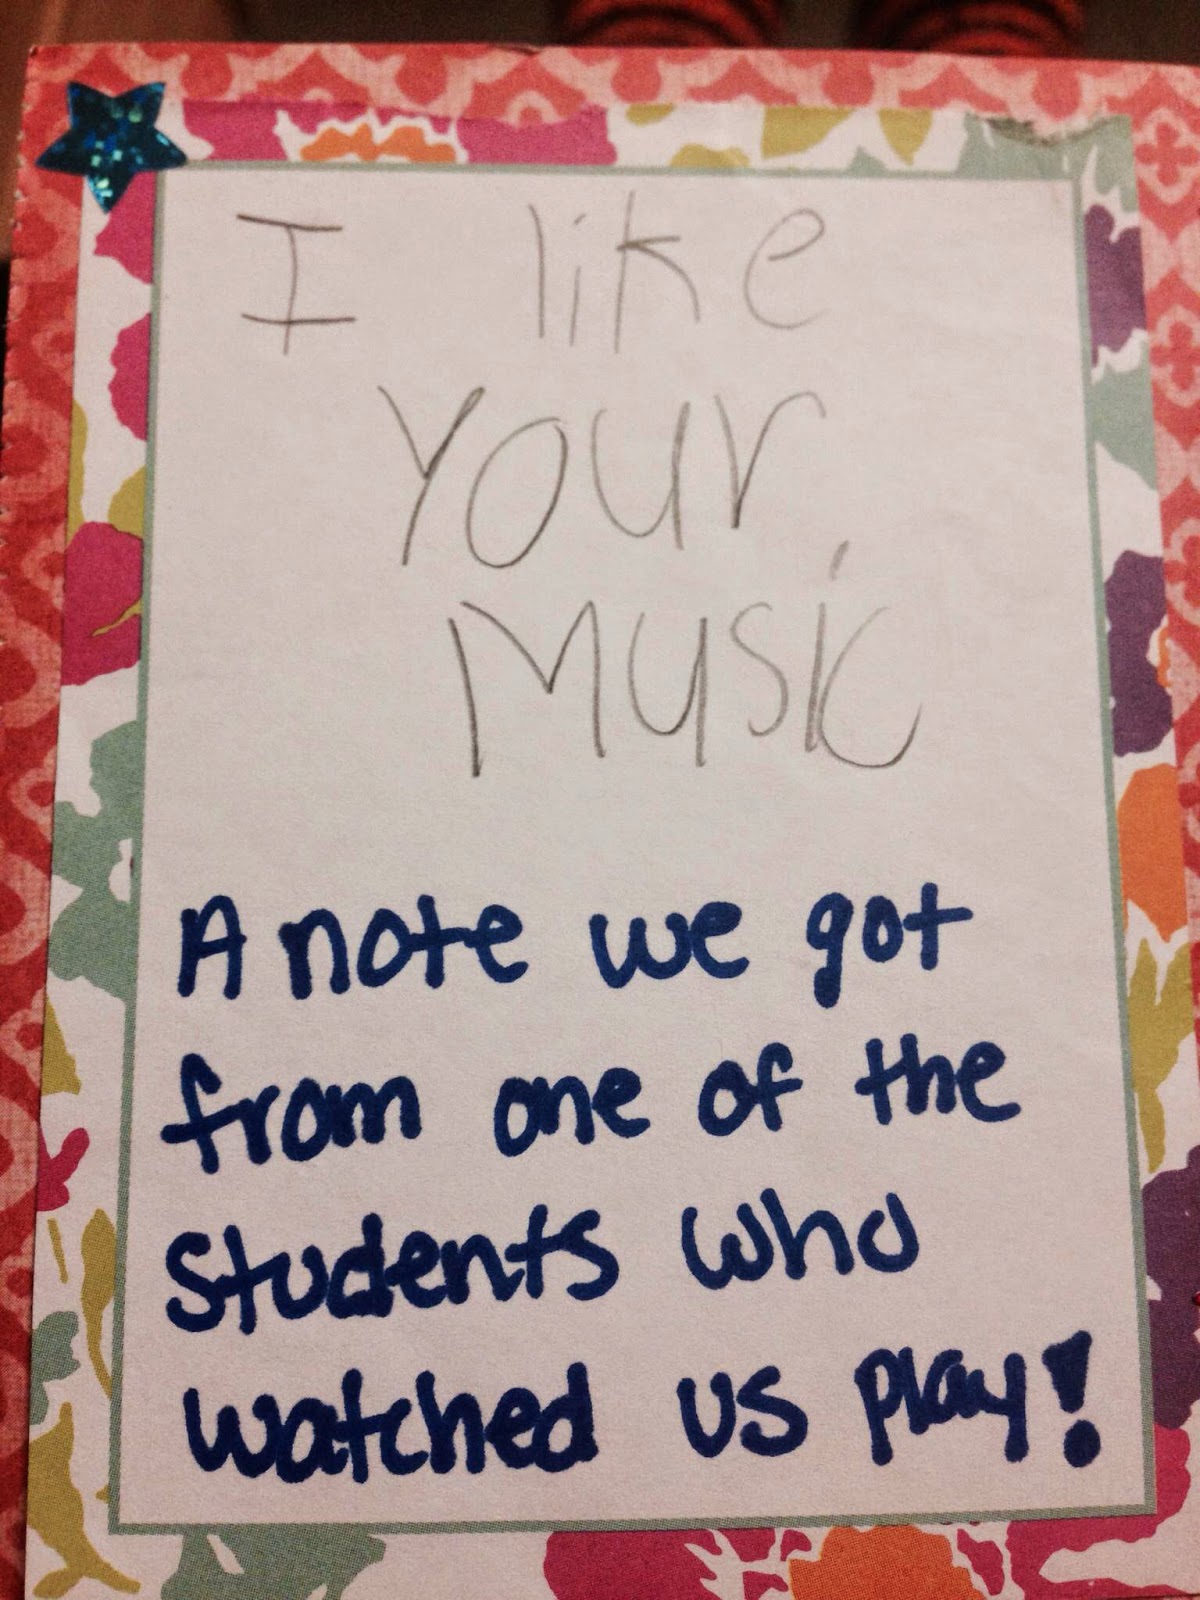 I like
Your
Music
A note we got
from one of the
students who
watched us play!